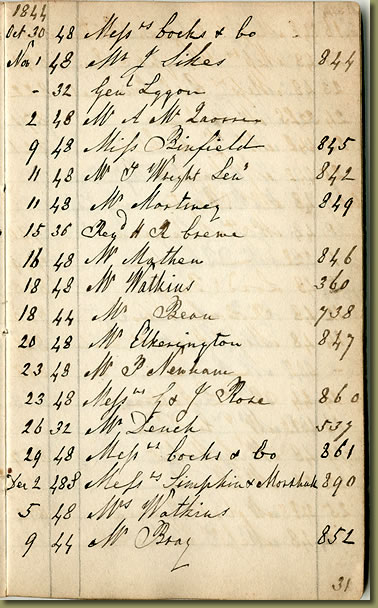 1844
Oct 30 48 Messrs Cocks & Co
Nov 1 48 Mr J Sikes 844
- 32 Genl Lygon
2 48 Mr A Mc
9 48 Miss Binfield 845
11 48 Mr T Wright Senr 842
11 48 Mr Mortimey 849
15 36 Revd H R Crewe
16 48 Mr Mathew 846
18 48 Mr Watkins 360
18 44 Mr Bean 738
20 48 Mr Elkerington 847
23 48 Mr P Newham
23 48 Messrs G & J Rose 860
26 32 Mr Dench 537
29 48 Messrs Cocks & Co 861
Dec 2 48 S Messrs Simpkin & 890
5 48 Mrs Watkins
9 44 Mr Bray 852
31